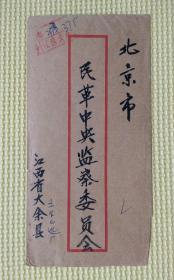 北京市
民革中央监察委员会
江西省大余县